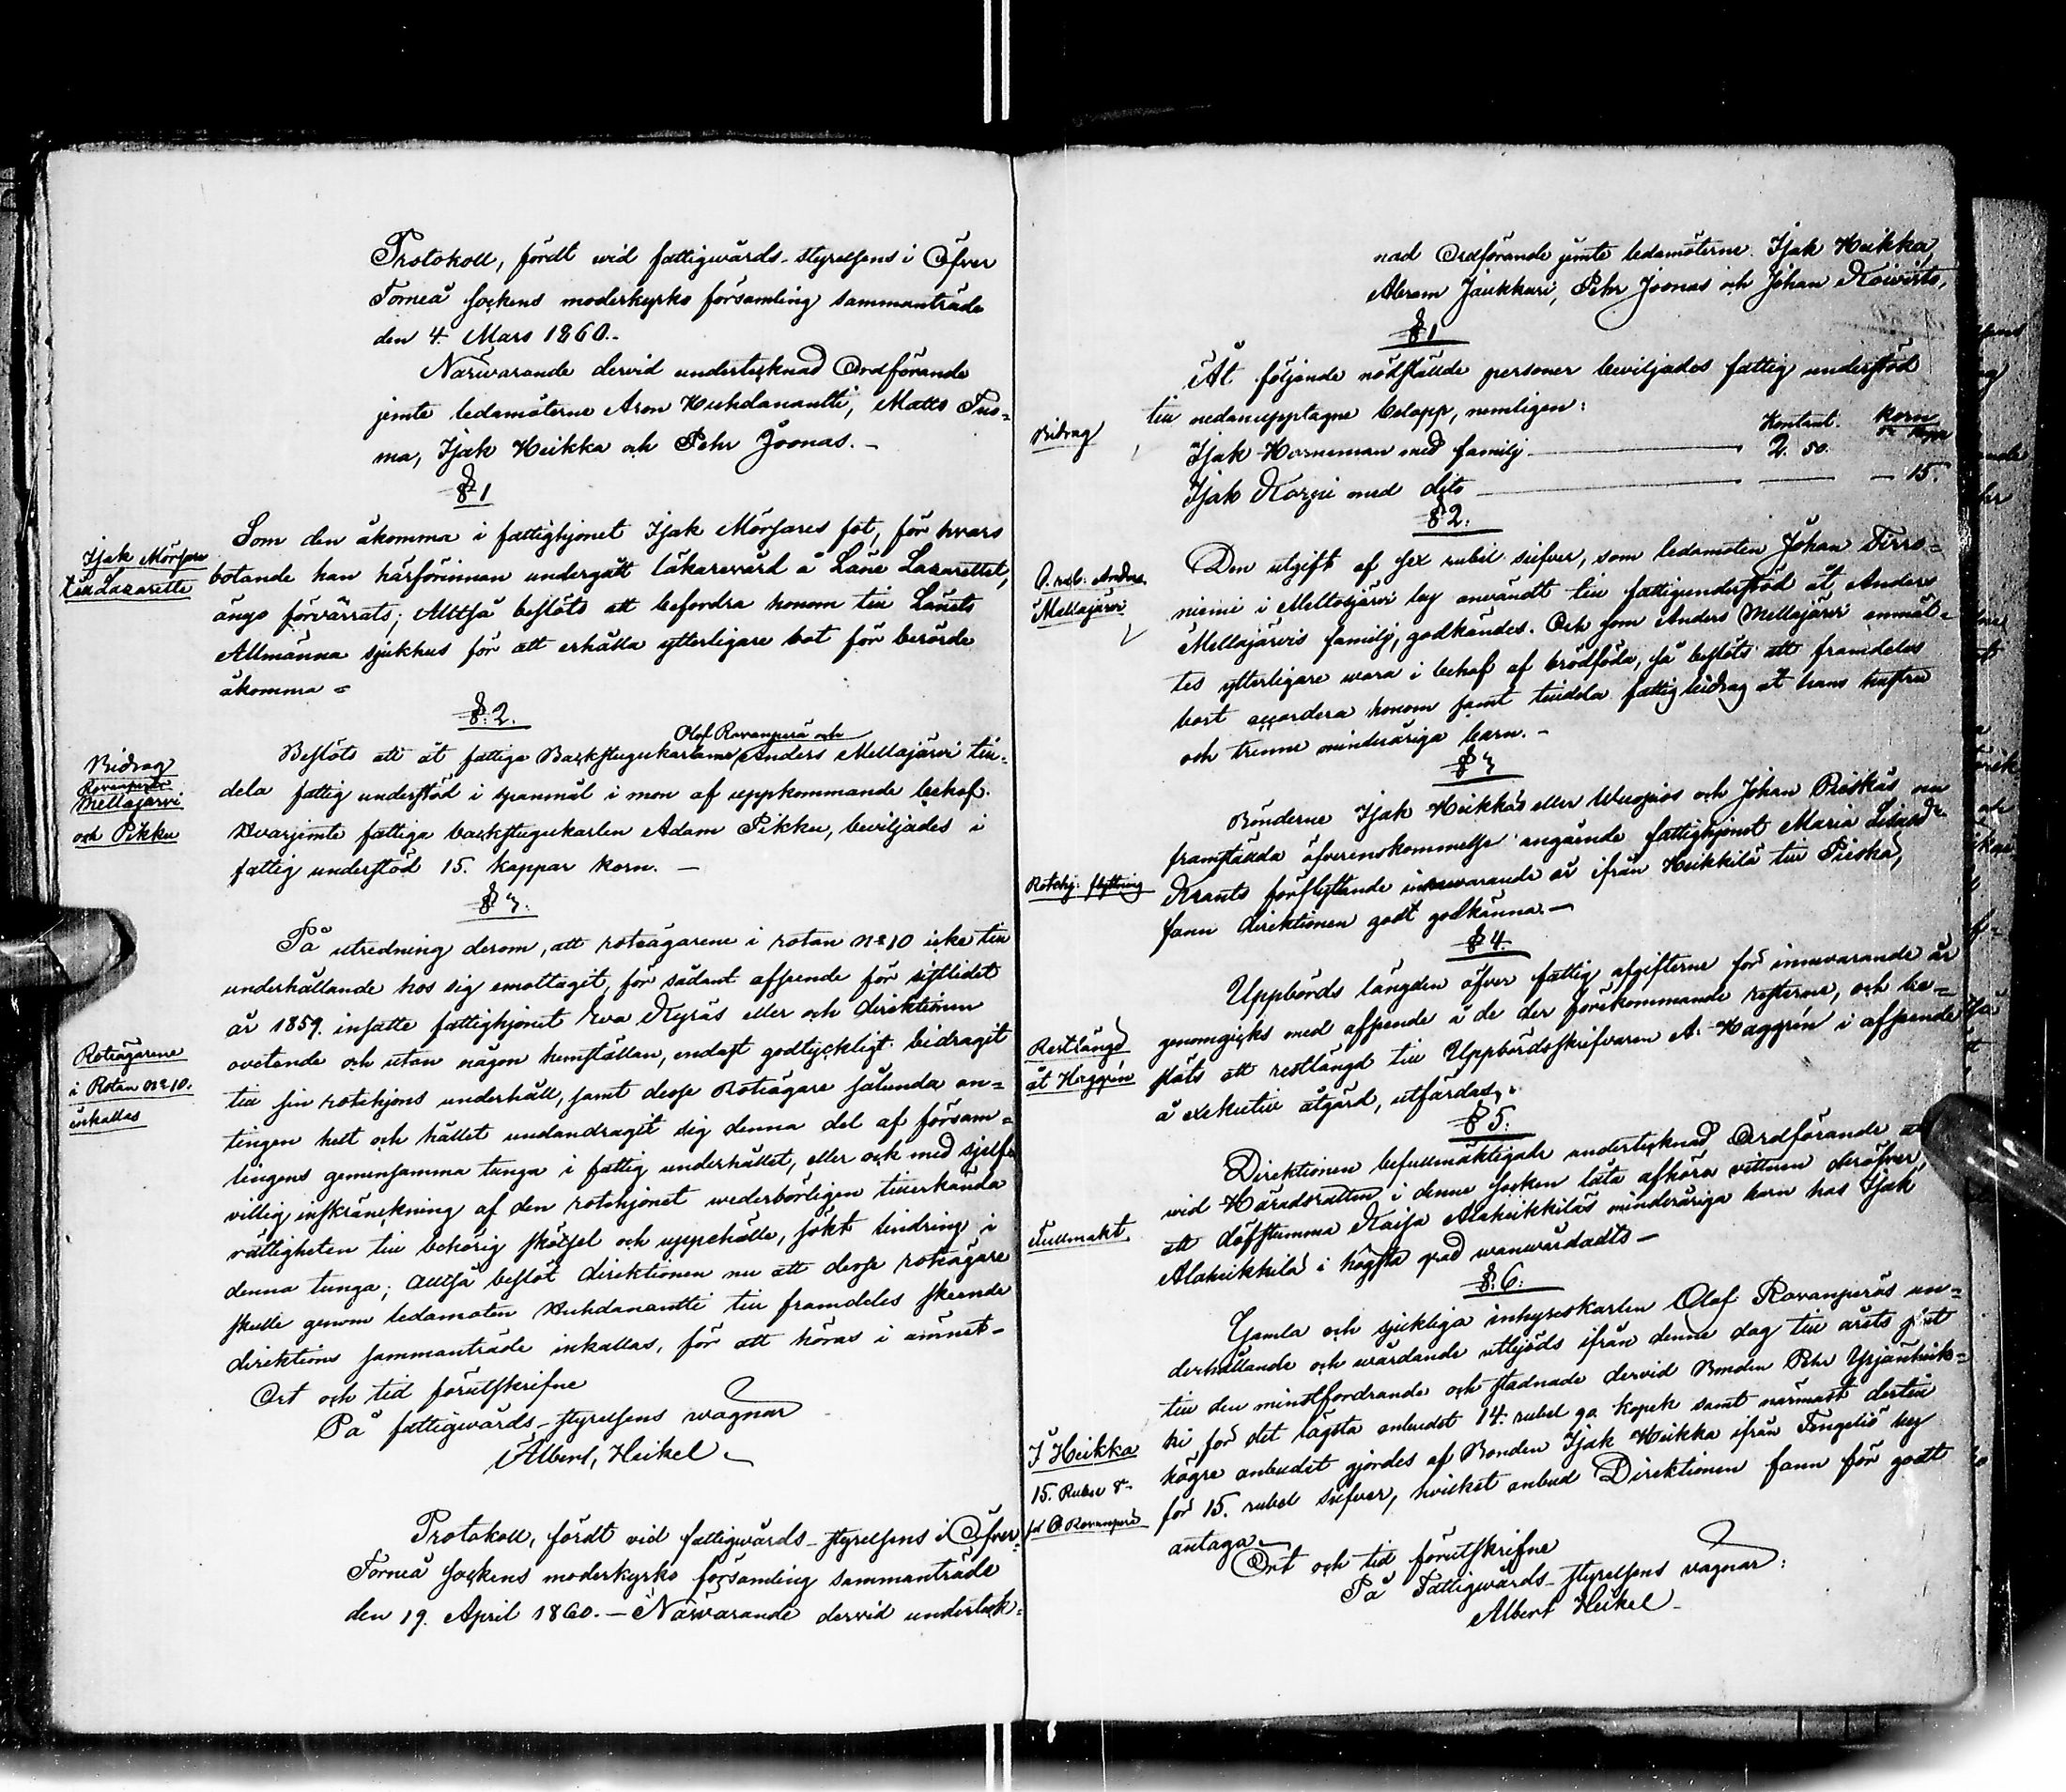 Protokoll, fördt wid fattigwårds-styrelsens i Öfver
Torneå sockens moderkyrko församling sammanträde
den 4. Mars 1860.-
Närwarande dervid undertecknad Ordförande
jemte ledamöterne Aron Huhdanantti, Matts Tuo=
ma, Isak Heikka och Pehr Joonas.-
§ 1
Isak Mörsare
till Lazarette
Som den åkomma i fattighjonet Isak Mörsares fot, för hvars
botande han härförinnan undergått läkarevård å Läne Lazarettet,
ånyo förvärrats; Alltså beslöts att befordra honom till Länets
Allmänna sjukhus för att erhålla ytterligare bot för berörde
åkomma =
§: 2.
Bidrag
Rovanperä
Mellajärvi
och Pikku
Olof Rovanperä och
Beslöts att åt fattiga Backstugukarlarne Anders Mellajärvi till-
dela fattig understöd i spanmål i mon af uppkommande behof.
Hvarjemte fattiga backstugukarlen Adam Pikku, beviljades i
fattig understöd 15. kappar korn. -
§ 3:
Roteägarene
i Rotan N:o 10.
inkallas
På utredning derom, att roteägarene i rotan N:o 10 icke till
underhållande hos sig emottagit, för sådant afseende för sistlidet
år 1859. insatte fattighjonet Eva Kyräs eller och direktionen
ovetande och utan någon hemställan, endast godtyckligt bidragit
till sin rotehjons underhåll, samt desse Roteägare sålunda an=
tingen helt och hållet undandragit sig denna del af försam=
lingens gemensamma tunga i fattig underhållet, eller ock med sjelf
villig inskränckning af den rotehjonet wederbörligen tillerkända
rättigheten till behörig skötsel och uppehälle, sökt lindring i
denna tunga; Alltså beslöt direktionen nu att desse roteägare
skulle genom ledamoten Huhdanantti till framdeles skeende
direktions sammanträde inkallas, för att höras i ämnet-
Ort och tid förutskrifne
På fattigwårds-styrelsens wägnar
Albert, Heikel
Protokoll, fördt vid fattigwårds-styrelsens i Öfver=
Torneå Sockens moderkyrko församling sammanträde
den 19. April 1860.- Närwarande dervid underteck=
nad Ordförande jemte ledamöterne Isak Heikka,
Abram Jaukkuri, Pehr Joonas och Johan Koivisto,
§ 1
Åt följande nödställde personer beviljades fattig understöd
till nedanupptagne belopp, nemligen:
Bidrag
Kontant. Korn
Isak Horneman med familj 2. 50.
Isak Korpi med dito — 15.
§ 2:
Mellajärvi
Den utgift af sex rubel silfver, som ledamoten Johan Tirro=
niemi i Meltosjärvi by användt till fattigunderstöd åt Anders
Mellajärvis familj, godkändes. Och som Anders Mellajärvi anmäl=
tes ytterligare wara i behof af brödföda, så beslöts att framdeles
bort accordera honom samt tilldela fattigbidrag åt hans hustru
och trenne minderåriga barn. -
§ 3
Rotehj: flyttning
Bönderne Isak Heikkas eller Wuopios och Johan Pieskäs nu
framställda öfverenskommelse angående fattighjonet Maria
Krants förflyttande innewarande år ifrån Heikkilä till Pieskä,
fann direktionen godt godkänna.-
§ 4.
Restlängd
åt Häggrén
Uppbörds längden öfver fattig afgifterne för innevarande år
genomgicks med afseende å de der förekommande resterne, och be=
slöts att restlängd till Uppbördsskrifvaren A. Häggrén i afseende
å exekutiv åtgärd, utfärdas.
§ 5:
Fullmakt.
Direktionen befullmäktigade undertecknad Ordförande att
wid Häradsrätten i denne socken låta afhöra vittnen deröfver,
att döfstumma Kaisa Alaheikkiläs minderåriga barn hos Isak
Alaheikkilä i högsta grad wanwårdadts-
§: 6:
I Heikka
15. Rubel
för O. Rovanperä
Gamla och sjukliga inhyseskarlen Olof Rovanperäs un=
derhållande och wårdande utbjöds ifrån denne dag till årets slut
till den minstfordrande och stadnade dervid Bonden Pehr Yrjänheik=
ki, för det lägsta anbudet 14. rubel 90 kopek samt närmast dertill
högre anbudet gjordes af Bonden Isak Heikka ifrån Tengeliö by
för 15. rubel silfver, hvilket anbud Direktionen fann för godt
antaga.
Ort och tid förutskrifne
På Fattigwårds-styrelsens vägnar:
Albert Heikel